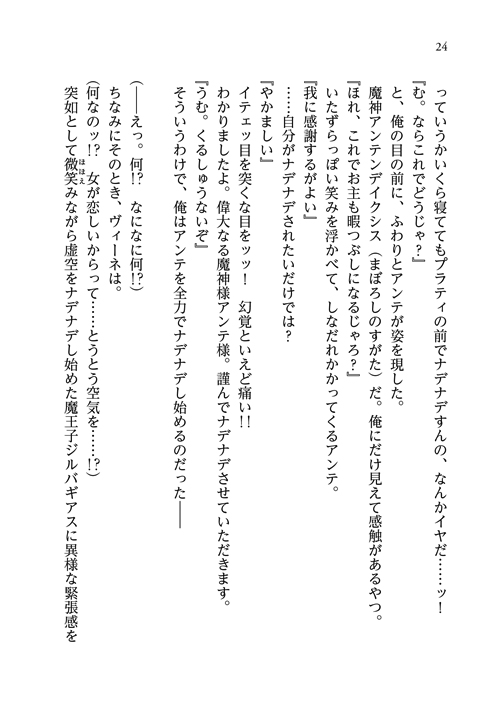 24
っていうかいくら寝ててもプラティの前でナデナデすんの、なんかイヤだ……ッ！
『む。ならこれでどうじゃ？』
と、俺の目の前に、ふわりとアンテが姿を現した。
魔神アンテンデイクシス（まぼろしのすがた）だ。俺にだけ見えて感触があるやつ。
『ほれ、これでお主も暇つぶしになるじゃろ？』
いたずらっぽい笑みを浮かべて、しなだれかかってくるアンテ。
『我に感謝するがよい』
……自分がナデナデされたいだけでは？
『やかましい』
イテェッ目を突くな目をッッ！　幻覚といえど痛い!!
わかりましたよ。偉大なる魔神様アンテ様。謹んでナデナデさせていただきます。
『うむ。くるしゅうないぞ』
そういうわけで、俺はアンテを全力でナデナデし始めるのだった――
（――えっ。何!?　なになに何!?）
ちなみにそのとき、ヴィーネは。
（何なのッ!?　女が恋しいからって……とうとう空気を……!?）
突如として微笑ほほえみながら虚空をナデナデし始めた魔王子ジルバギアスに異様な緊張感を